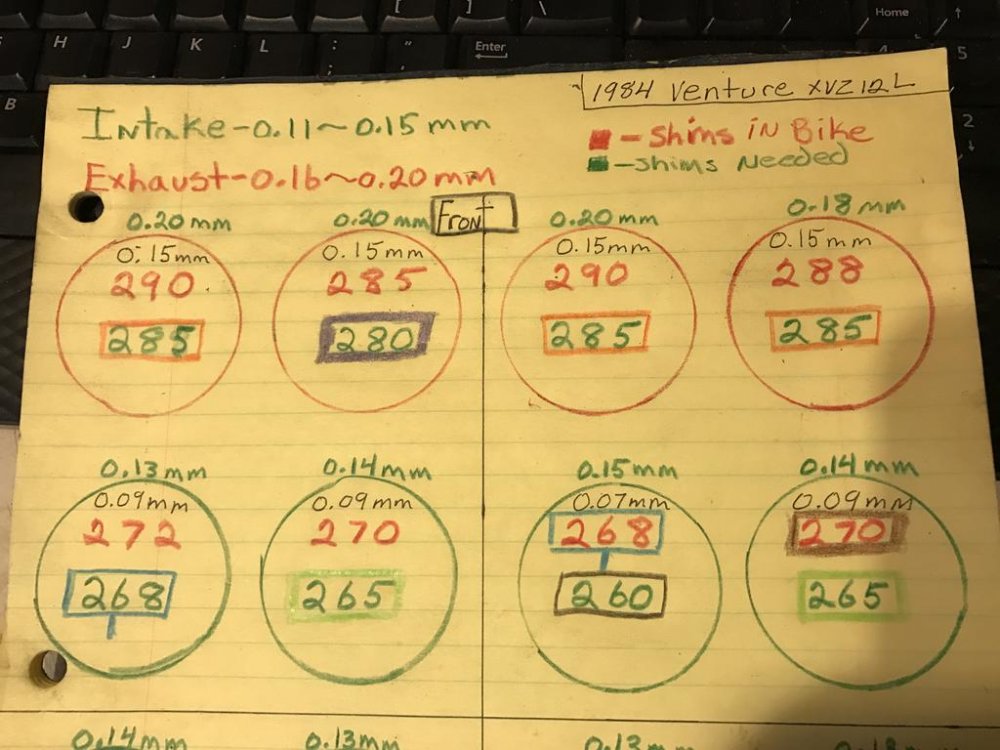 Home
↑
H J K L : "
;
Enter
5
B
2
↓
1984 Venture XVZ12L
Intake-0.11~0.15mm
- Shims in Bike
Exhaust-0.16~0.20mm
- Shims Needed
Front
0.20mm 0.20mm 0.20mm 0.18mm
0.15mm 0.15mm 0.15mm 0.15mm
290 285 290 288
285 280 285 285
0.13mm 0.14mm 0.15mm 0.14mm
0.09mm 0.09mm 0.07mm 0.09mm
272 270 268 270
268 265 260 265
0.14mm 0.13mm 0.13mm